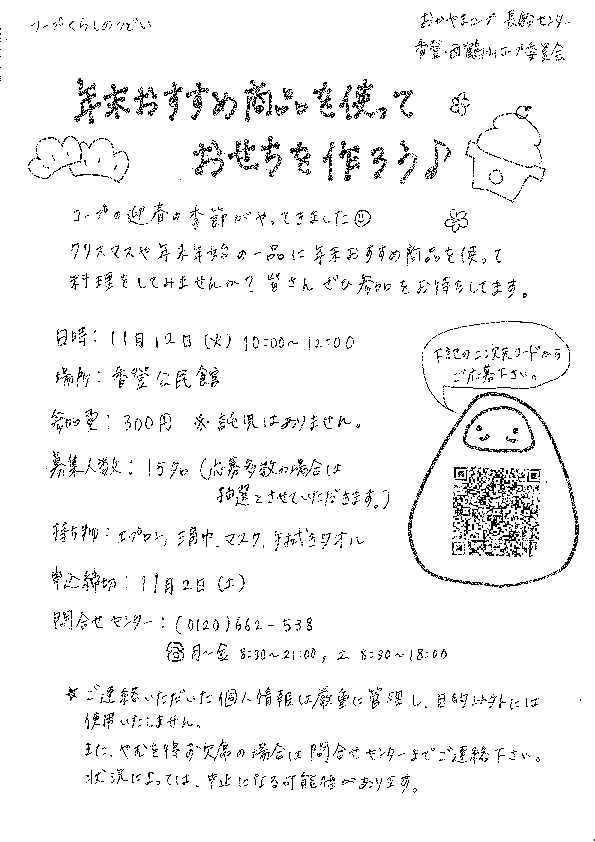 コープくらしのつどい
おかやまコープ 長船センター
香登・西鶴山コープ委員会
年末おすすめ商品を使って
おせちを作ろう♪
コープの迎春の季節がやってきました
クリスマスや年末年始の一品に年末おすすめ商品を使って
料理をしてみませんか？皆さんぜひ参加をお待ちしてます。
日時：11月12日（火）10:00〜12:00
場所：香登公民館
参加費：300円 ※託児はありません。
募集人数：15名（応募多数の場合は
抽選とさせていただきます。）
持ち物：エプロン、三角巾、マスク、手拭きタオル
申込締切：11月2日（土）
問合せセンター：(0120)662-538
月〜金 8:30〜21:00, 土 8:30〜18:00
下記の二次元コードから
ご応募下さい。
★ご連絡いただいた個人情報は厳重に管理し、目的以外には
使用いたしません。
また、やむを得ず欠席の場合は問合せセンターまでご連絡下さい。
状況によっては、中止になる可能性があります。